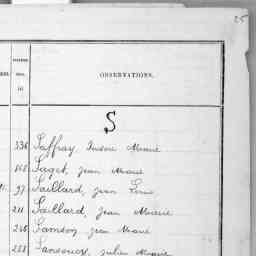 25
OBSERVATIONS.
S
336 Saffray, Marie
168 Saget, Jean Marie
97 Saillard, Jean
211 Saillard, Jean Marie
246 Samson, Jean Marie
288 Julien Marie